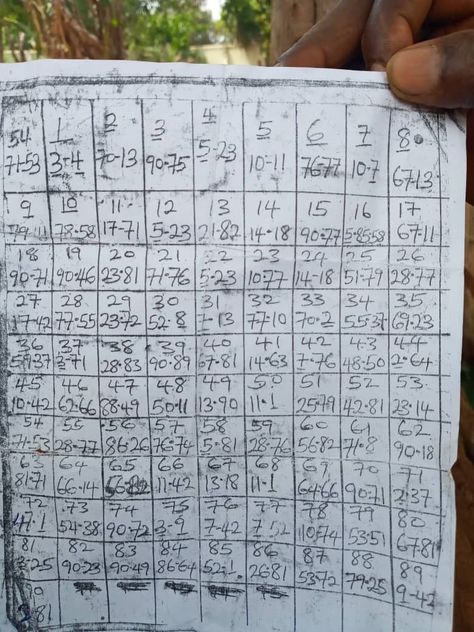 54 1 2 3 4 5 6 7 8
71-53 3-4 70-13 90-75 5-23 10-11 76-77 10-7 67-13
9 10 11 12 13 14 15 16 17
79-11 78-58 17-71 5-23 21-82 14-18 90-77 5-85-58 67-11
18 19 20 21 22 23 24 25 26
90-71 90-46 23-81 71-76 5-23 10-77 14-18 51-79 28-77
27 28 29 30 31 32 33 34 35
17-42 77-55 23-72 52-8 7-13 77-10 70-2 55-37 69-23
36 37 38 39 40 41 42 43 44
2-71 28-83 90-89 67-81 14-63 7-76 48-50 2-64
45 46 47 48 49 50 51 52 53
10-42 62-66 88-49 50-11 13-90 11-1 25-79 42-81 23-14
54 55 56 57 58 59 60 61 62
71-53 28-77 86-26 76-74 5-81 28-76 56-82 71-8 90-18
63 64 65 66 67 68 69 70 71
81-71 66-14 11-42 13-18 11-1 64-66 90-71 2-37
72 73 74 75 76 77 78 79 80
54-38 90-72 3-9 7-42 7-52 10-74 53-51 67-81
81 82 83 84 85 86 87 88 89
90-23 90-49 86-64 52-1 26-81 53-72 79-25 9-42